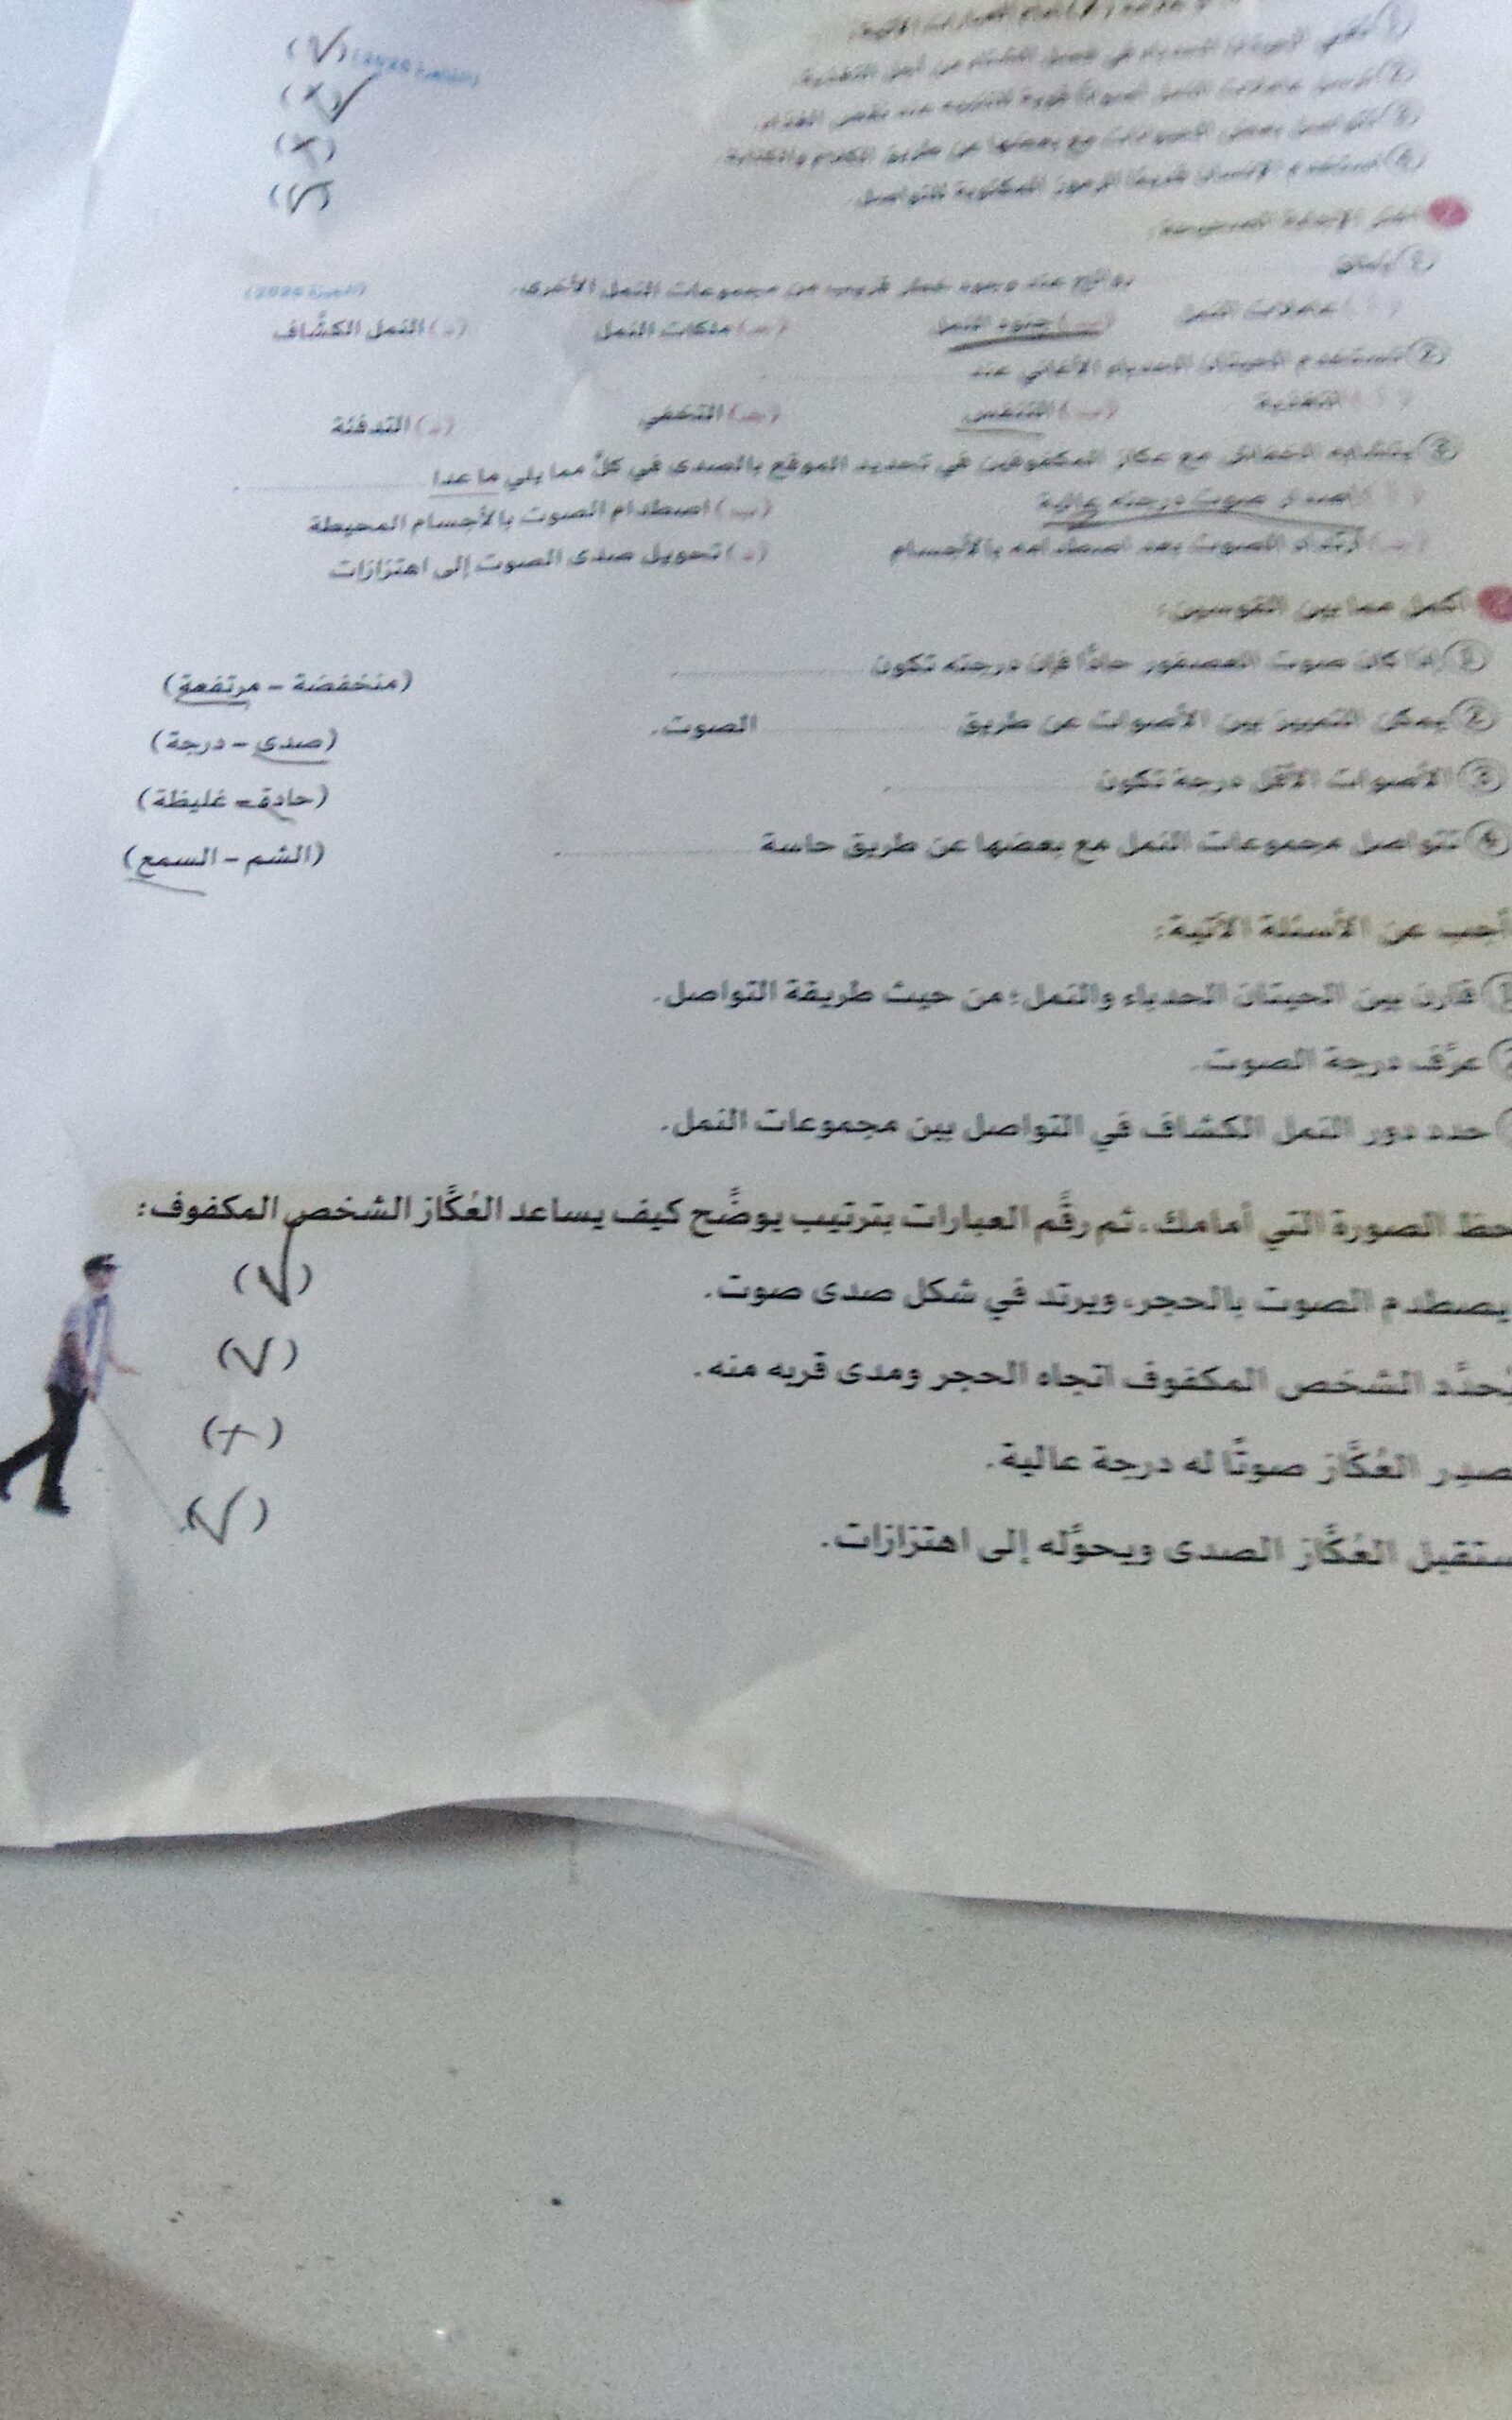 (✓) (القاهرة 2024)
(✗) ✓
تتواصل بعض الحيوانات مع بعضها عن طريق الكلام والكتابة. (✗)
يستخدم الإنسان قديمًا الرموز المكتوبة للتواصل. (✓)
اختر الإجابة الصحيحة:
1 روائح عند وجود خطر قريب من مجموعات النمل الأخرى. (الجيزة 2024)
(أ) عاملات النمل (ب) جنود النمل (جـ) ملكات النمل (د) النمل الكشَّاف
2 تستخدم الحيتان الحدباء الأغاني عند
(أ) التغذية (ب) التنفس (جـ) التخفي (د) التدفئة
3 يتشابه الخفاش مع عكاز المكفوفين في تحديد الموقع بالصدى في كلٍّ مما يلي ما عدا
(أ) إصدار صوت درجته عالية (ب) اصطدام الصوت بالأجسام المحيطة
(جـ) ارتداد الصوت بعد اصطدامه بالأجسام (د) تحويل صدى الصوت إلى اهتزازات
أكمل مما بين القوسين:
1 إذا كان صوت العصفور حادًّا فإن درجته تكون (منخفضة - مرتفعة)
2 يمكن التمييز بين الأصوات عن طريق الصوت. (صدى - درجة)
3 الأصوات الأقل درجة تكون (حادة - غليظة)
4 تتواصل مجموعات النمل مع بعضها عن طريق حاسة (الشم - السمع)
أجب عن الأسئلة الآتية:
1 قارن بين الحيتان الحدباء والنمل؛ من حيث طريقة التواصل.
عرِّف درجة الصوت.
حدد دور النمل الكشاف في التواصل بين مجموعات النمل.
حظ الصورة التي أمامك، ثم رقِّم العبارات بترتيب يوضِّح كيف يساعد العُكَّاز الشخص المكفوف:
يصطدم الصوت بالحجر، ويرتد في شكل صدى صوت. (✓)
يُحدِّد الشخص المكفوف اتجاه الحجر ومدى قربه منه. (✓)
صدر العُكَّاز صوتًا له درجة عالية. (✗)
ستقبل العُكَّاز الصدى ويحوِّله إلى اهتزازات. (✓)